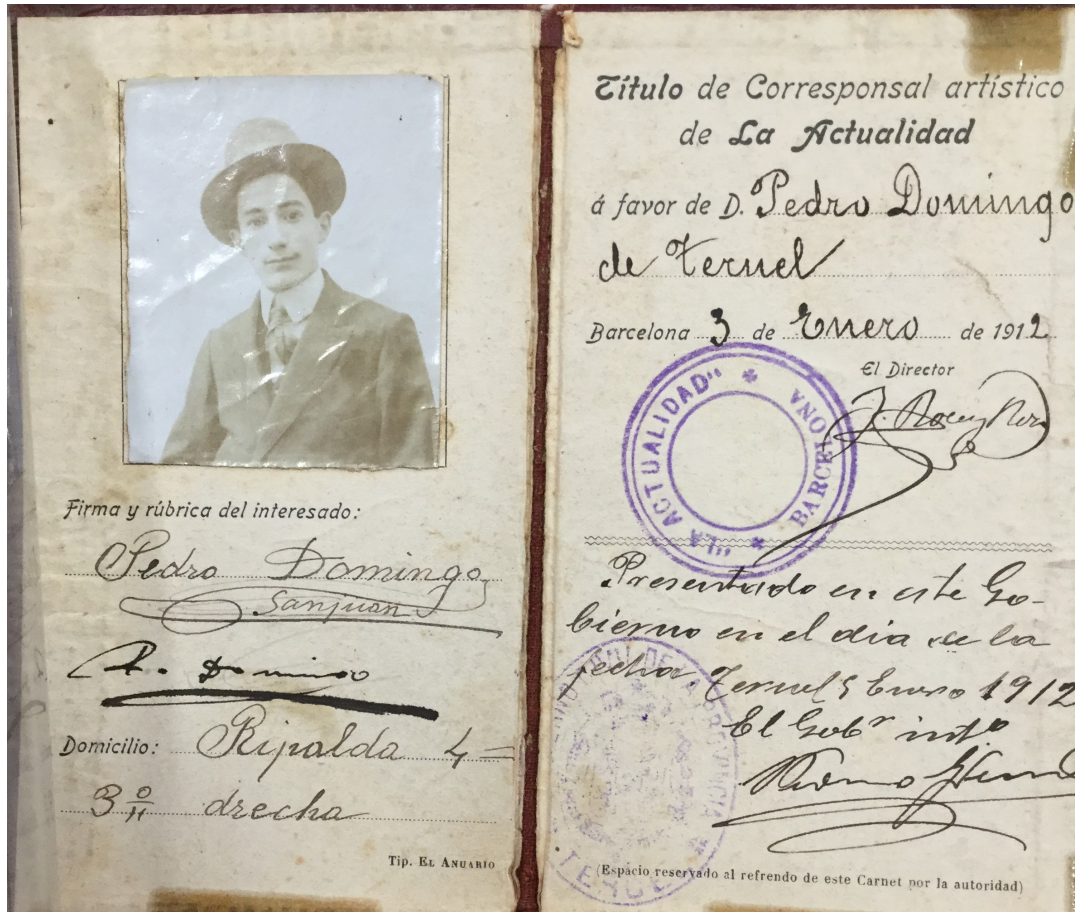 Firma y rúbrica del interesado:
Pedro Domingo
Sanjuan
P. Domingo
Domicilio: Ripalda 4=
3º drecha
Tip. El Anuario
Título de Corresponsal artístico
de La Actualidad
á favor de D. Pedro Domingo
de Teruel
Barcelona 3 de Enero de 1912
El Director
"LA ACTUALIDAD" BARCELONA
Presentado en este Go-
bierno en el dia de la
fecha. Teruel 5 Enero 1912
El Gobr intº
DE LA PROVINCIA
TERUEL
(Espacio reservado al refrendo de este Carnet por la autoridad)